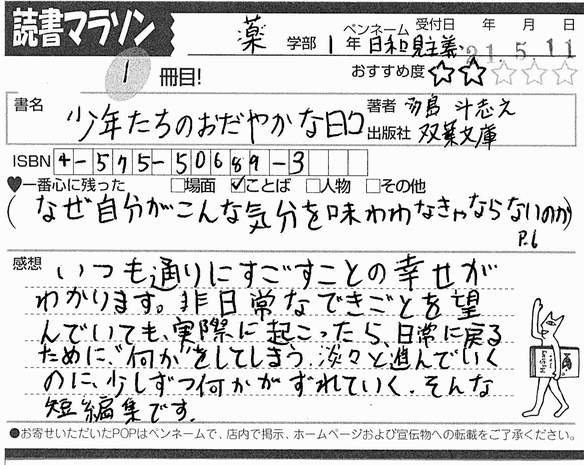 読書マラソン
薬 学部 1年 ペンネーム 日和見主義 受付日 年 月 日 21.5.11
1 冊目! おすすめ度 ★★☆☆☆
書名 少年たちのおだやかな日々 著者 多島 斗志之
出版社 双葉文庫
ISBN 4-575-50689-3
♥一番心に残った □場面 ☑ことば □人物 □その他
(なぜ自分がこんな気分を味わわなきゃならないのか)
P.6
感想 いつも通りにすごすことの幸せが
わかります。非日常なできごとを望
んでいても、実際に起こったら、日常に戻る
ために、"何か"をしてしまう。淡々と進んでいく
のに、少しずつ何かがずれていく。そんな
短編集です。
●お寄せいただいたPOPはペンネームで、店内で掲示、ホームページおよび宣伝物への転載をご了承ください。